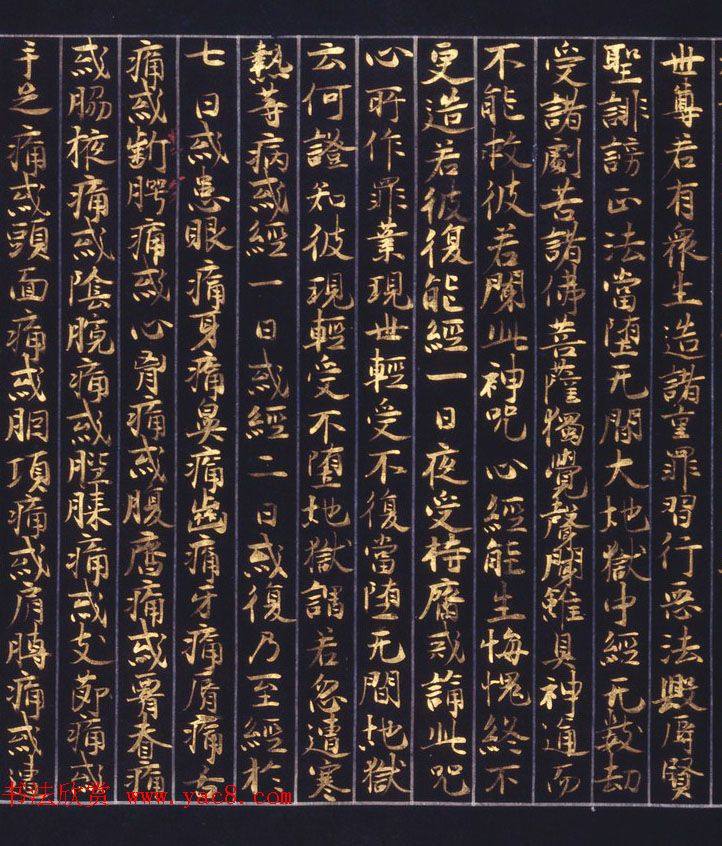 世尊若有眾生造諸重罪習行惡法毀辱賢
聖誹謗正法當堕无間大地獄中經无數劫
受諸劇苦諸佛菩薩獨覺聲聞雖具神通而
不能救彼若聞此神咒心經能生悔愧終不
更造若彼復能經一日夜受持齋戒誦此咒
心所作罪業現世輕受不復當堕无間地獄
云何證知彼現輕受不堕地獄謂若忽遭寒
熱等病或經一日或經二日或復乃至經於
七日或患眼痛身痛鼻痛齒痛牙痛脣痛舌
痛或齗腭痛或心胷痛或腹齊痛或脊痛
或脇痛或陰痛或膝痛或支節痛或
手足痛或頭面痛或胭項痛或肩膊痛或
书法欣赏 www.yac8.com